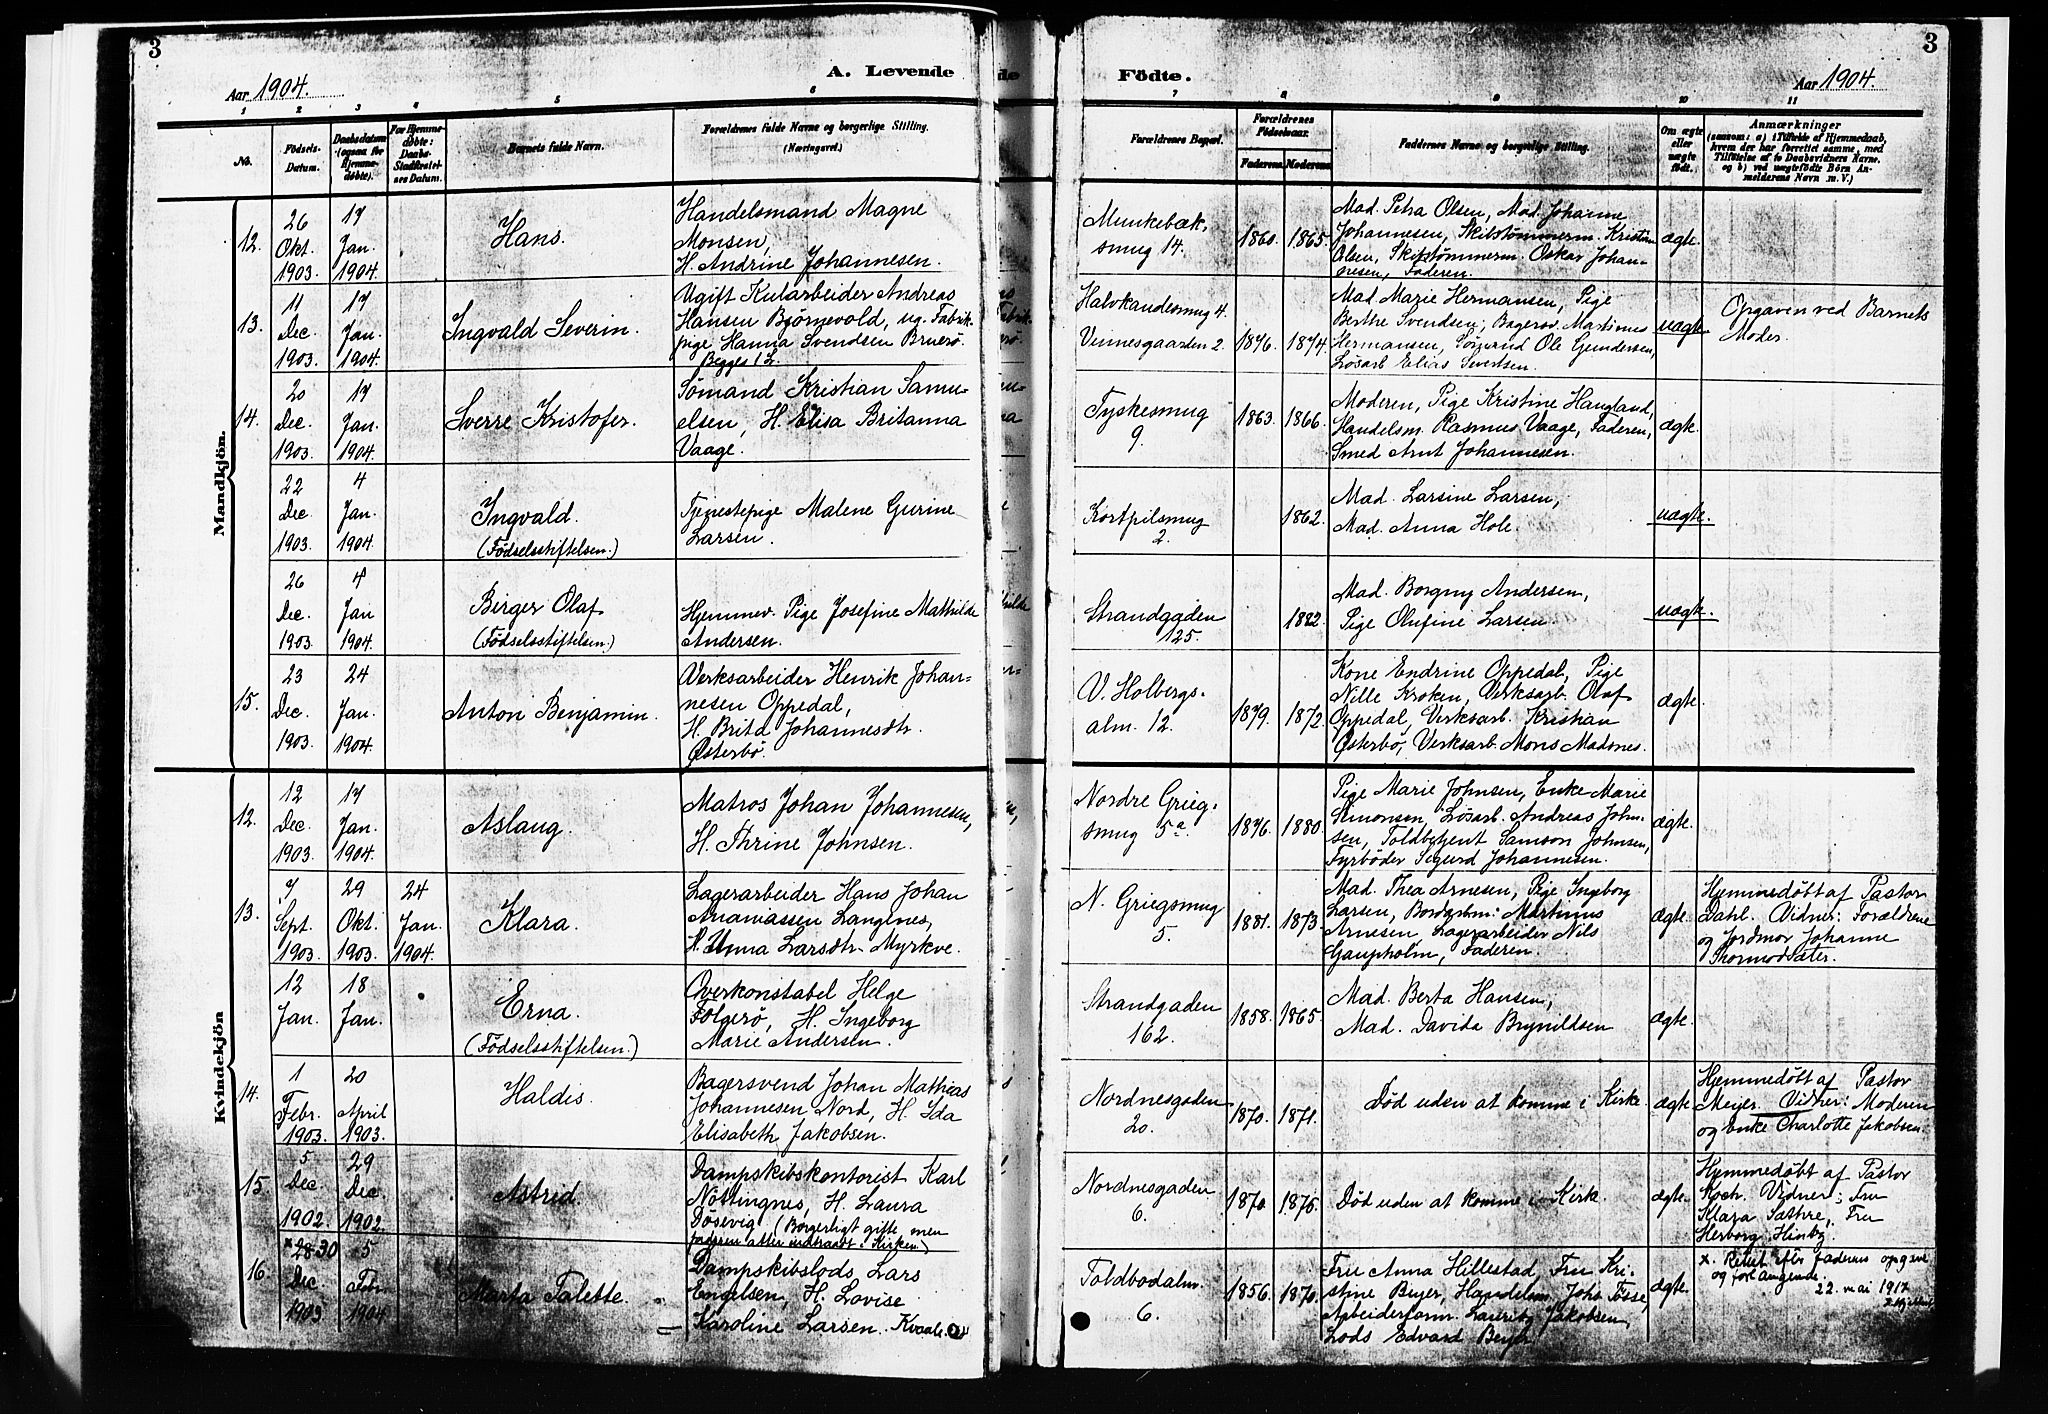 3
3
Aar 1904.
A. Levende
Födte.
Aar 1904.
1 2 3 4 5 6
7 8 9 10 11
No.
Födsels-Datum.
Daabsdatum (ogsaa for Hjemmedöbte).
For Hjemmedöbte: Daabs-Stadfæstelses Datum.
Barnets fulde Navn.
Forældrenes fulde Navne og borgerlige Stilling.
(Næringsvei.)
Forældrenes Bopæl.
Forældrenes Födselsaar.
Faderens. Moderens.
Faddernes Navne og borgerlige Stilling.
Om ægte eller uægte födt.
Anmærkninger
(saasom: a) i Tilfælde af Hjemmedaab,
hvem der har forrettet samme, med
Tilföielse af to Daabsvidners Navne,
og b) ved uægtefödte Börn An-
melderens Navn m. V.)
Mandkjön.
12.
26 Okt. 1903.
17 Jan. 1904.
Hans.
Handelsmand Magne
Monsen,
H. Andrine Johannesen.
Munkebæk,
smug 14.
1860. 1865.
Mad. Petra Olsen, Mad. Johanne
Johannesen, Skibstømmerm. Kristian
Olsen, Skibstømmerm. Oskar Johan-
nesen, Faderen.
ægte.
13.
11 Dec. 1903.
17 Jan. 1904.
Ingvald Severin.
Ugift Kularbeider Andreas
Hansen Bjørnevold, ug. Fabrik-
pige Hanna Svendsen Bruerø.
Begges 1 L.
Halvkandesmug 4.
Vinnesgaarden 2.
1876. 1874.
Mad. Marie Hermansen, Pige
Berthe Svendsen, Bagersv. Martinus
Hermansen, Sømand Ole Gundersen,
Løsarb Elias Sivertsen.
uægte.
Opgaven ved Barnets
Moder.
14.
20 Dec. 1903.
17 Jan. 1904.
Sverre Kristofer.
Sømand Kristian Samu-
elsen, H. Elisa Britanna
Vaage.
Tyskesmug
9.
1863. 1866.
Moderen, Pige Kristine Haugland,
Handelsm. Rasmus Vaage, Faderen,
Smed Arnt Johannesen.
ægk.
22 Dec. 1903.
4 Jan. 1904.
Ingvald.
(Fødselsstiftelsen.)
Tjenestepige Malene Gurine
Larsen.
Kortpilsmug
2.
1862.
Mad. Larsine Larsen,
Mad. Anna Hole.
uægte.
26 Dec. 1903.
4 Jan 1904.
Birger Olaf
(Fødselsstiftelsen.)
Hjemmev. Pige Josefine Mathilde
Andersen.
Strandgaden
125.
1882.
Mad. Borgny Andersen,
Pige Olufine Larsen.
uægk.
15.
23 Dec. 1903.
24 Jan. 1904.
Anton Benjamin.
Verksarbeider Henrik Johan-
nesen Oppedal,
H. Brita Johannesdtr.
Østerbø.
V. Holbergs-
alm. 12.
1879. 1872.
Kone Endrine Oppedal, Pige
Nille Kroken, Verksarb. Olaf
Oppedal, Verksarb. Kristian
Østerbø, Verksarb. Mons Madsnes.
ægte.
Kvindekjön
12.
12 Dec. 1903.
17 Jan. 1904.
Aslaug.
Matros Johan Johannesen,
H. Thrine Johnsen.
Nordre Grieg-
smug 5a.
1876. 1880.
Pige Marie Johnsen, Enke Marie
Simonsen, Løsarb. Andreas John-
sen, Toldbetjent Samson Johnsen,
Fyrbøder Sigurd Johannesen.
ægte.
13.
7 Sept. 1903.
29 Okt. 1903.
24 Jan. 1904.
Klara.
Lagerarbeider Hans Johan
Ananiassen Langenes,
H. Anna Larsdtr. Myrkve.
N. Griegsmug
5.
1881. 1873.
Mad. Thea Arnesen, Pige Ingeborg
Larsen, Martinus
Arnesen, Lagerarbeider Nils
Gaupholm, Faderen.
ægte.
Hjemmedøbt af Pastor
Dahl. Vidner: Forældrene
og Jordmor Johanne
Thormodsæter.
12 Jan.
18 Jan.
Erna.
(Fødselsstiftelsen.)
Overkonstabel Helge
Folgerø, H. Ingeborg
Marie Andersen.
Strandgaden
162.
1858. 1865.
Mad. Berta Hansen,
Mad. Davida Brynildsen
ægte.
14.
1 Febr. 1903.
20 April 1903.
Haldis.
Bagersvend Johan Mathias
Johannesen Nord, H. Ida
Elisabeth Jakobsen.
Nordnesgaden
20.
1870. 1871.
Død uden at komme i Kirke
ægte
Hjemmedøbt af Pastor
Meyer. Vidner: Moderen
og Enke Charlotte Jakobsen.
15.
5 Dec. 1902.
29 Dec. 1902.
Astrid.
Dampskibskontorist Karl
Nøttingnes, H. Laura
Døsevig (Borgerligt gifte, men
faderen atter indtraadt i Kirken)
Nordnesgaden
6.
1870. 1875.
Død uden at komme i Kirk.
ægte.
Hjemmedøbt af Pastor
Koch. Vidner: Fru
Klara Sæthre, Fru
Herborg Hinby.
16.
x 28 30 Dec. 1903
5 Febr. 1904
Marta Talette.
Dampskibslods Lars
Engelsen, H. Lovise
Karoline Larsen. Kvaale.
Toldbodalm.
6.
1856. 1870.
Fru Anna Hillestad, Fru Kri-
stine Beyer, Handelsm. Johs Fosse,
Arbeiderform. Lauritz Jakobsen,
Lods Edvard Beyer
ægte.
x. Rettet efter faderens opgave
og forlangende.
22. mai 1912